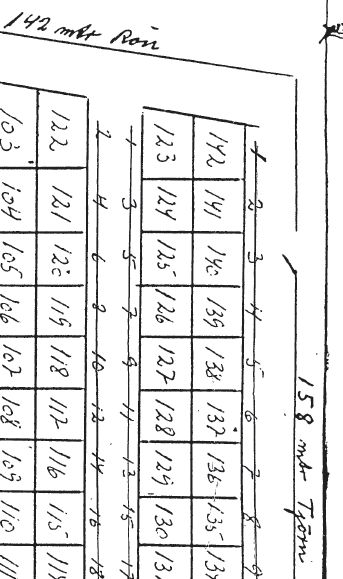 142 mtr Rön
158 mtr Tjörn
103 104 105 106 107 108 109 110
122 121 120 119 118 117 116 115
2 4 6 8 10 12 14 16 18
1 3 5 7 9 11 13 15 17
123 124 125 126 127 128 129 130
142 141 140 139 138 137 136 135
1 2 3 4 5 6 7 8 9